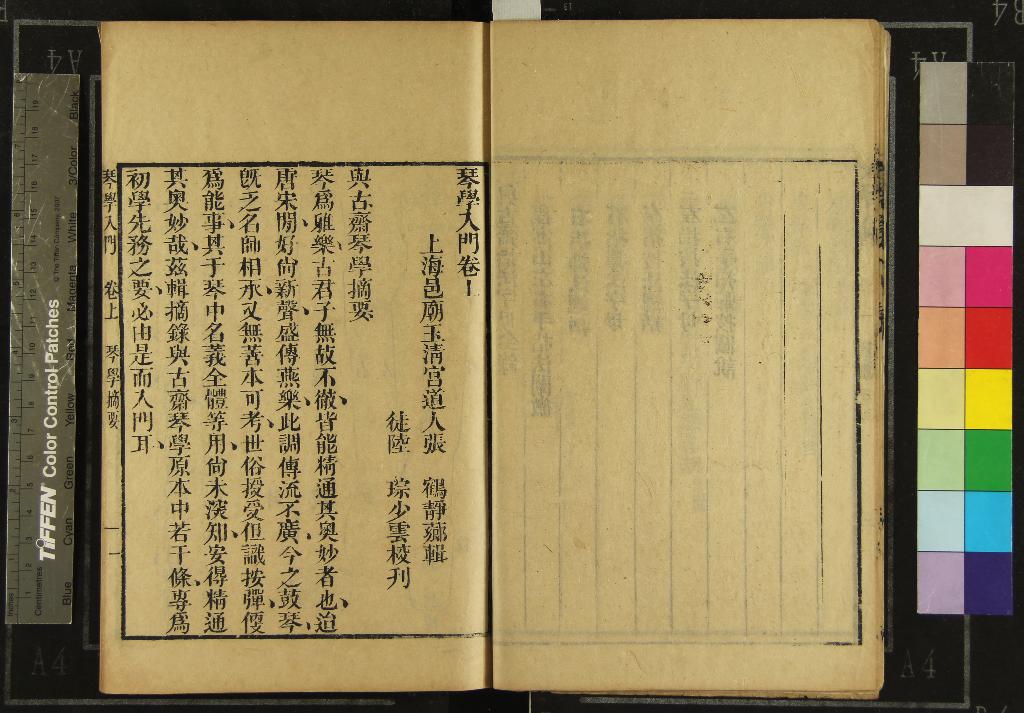 琴學入門卷上
上海邑廟玉清宮道人張　鶴靜薌輯
徒陸　琮少雲校刊
與古齋琴學摘要
琴爲雅樂古君子無故不徹皆能精通其奧妙者也迨
唐宋閒好尙新聲盛傳燕樂此調傳流不廣今之鼓琴
旣乏名師相承又無善本可考世俗授受但識按彈便
爲能事其于琴中名義全體等用尙未深知安得精通
其奧妙哉茲輯摘錄與古齋琴學原本中若干條專爲
初學先務之要必由是而入門耳
琴學入門　卷上　琴學摘要　一
TIFFEN Color Control Patches
© The Tiffen Company, 2007
Blue Cyan Green Yellow Red Magenta White 3/Color Black
Inches
Centimetres
A4
A4
A4
A4